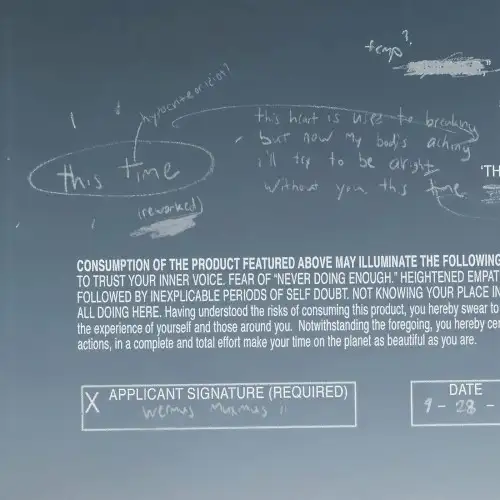 temp?
this heart is used to breaking
but now my body's aching
i'll try to be alright
without you this time
this time
(reworked)
'TH
CONSUMPTION OF THE PRODUCT FEATURED ABOVE MAY ILLUMINATE THE FOLLOWING
TO TRUST YOUR INNER VOICE. FEAR OF "NEVER DOING ENOUGH." HEIGHTENED EMPAT
FOLLOWED BY INEXPLICABLE PERIODS OF SELF DOUBT. NOT KNOWING YOUR PLACE IN
ALL DOING HERE. Having understood the risks of consuming this product, you hereby swear to
the experience of yourself and those around you. Notwithstanding the foregoing, you hereby cer
actions, in a complete and total effort make your time on the planet as beautiful as you are.
X APPLICANT SIGNATURE (REQUIRED)
DATE
9-28-